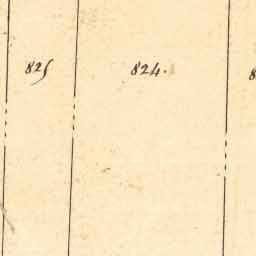 825 824.
8